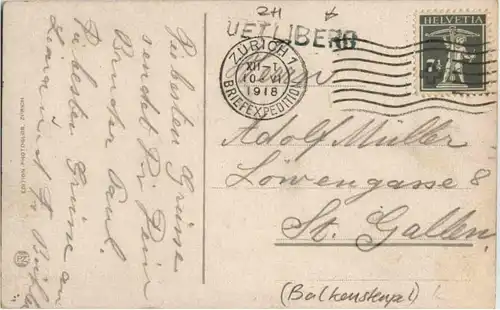 ZH
UETLIBERG
HELVETIA
7½
ZÜRICH 1
XII-1
10. VI
1918
BRIEFEXPEDITION
Herrn
Adolf Müller
Löwengasse 8
St. Gallen
(Balkenstempel)
Die besten Grüsse
sendet Dir Dein
Bruder Paul.
Die besten Grüsse an
EDITION PHOTOGLOB, ZÜRICH
PZ